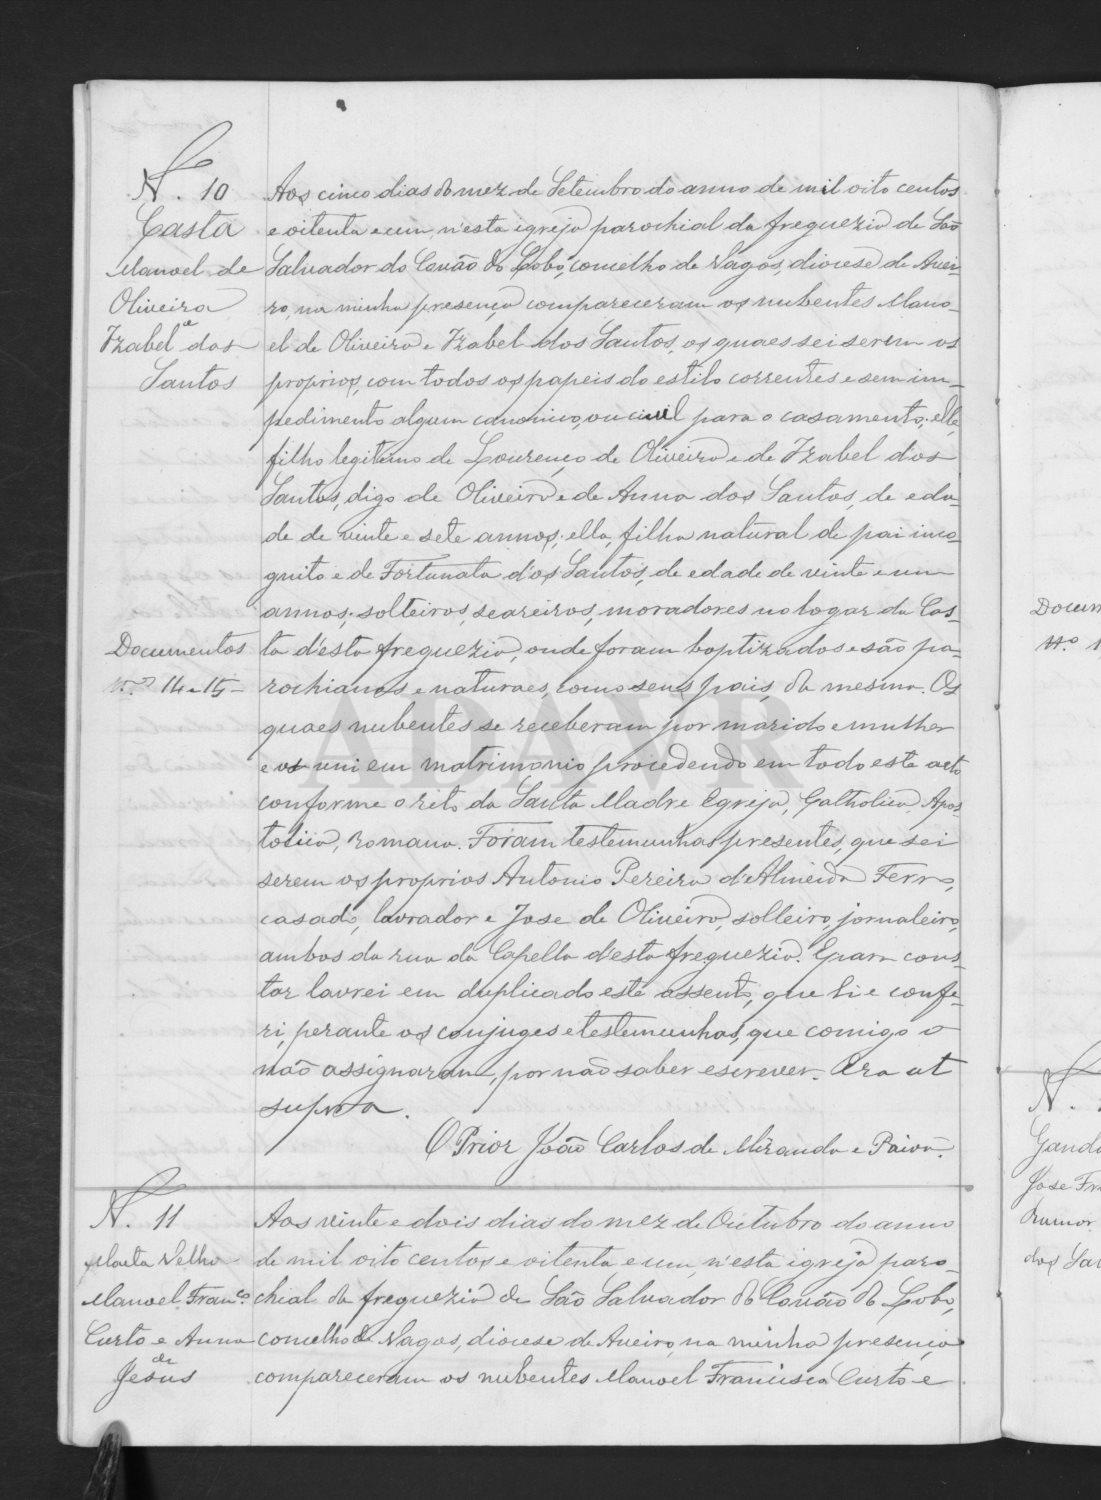 N. 10
Casta
Manoel de
Oliveira
e
Izabel dos
Santos
Aos cinco dias do mez de Setembro do anno de mil oito centos
e oitenta e um, n'esta igreja parochial da freguezia de São
Salvador do Covão do Lobo, concelho de Vagos, diocese de Avei-
ro, na minha presença compareceram os nubentes Mano-
el de Oliveira e Izabel dos Santos, os quaes sei serem os
proprios, com todos os papeis do estilo correntes e sem im-
pedimento algum canonico, ou civil para o casamento; elle,
filho legitimo de Lourenço de Oliveira e de Izabel dos
Santos, digo de Oliveira e de Anna dos Santos, de eda-
de de vinte e sete annos; ella, filha natural de pai inco-
gnito e de Fortunata d'os Santos, de edade de vinte e um
annos; solteiros, seareiros, moradores no logar da Cas-
ta d'esta freguezia, onde foram baptizados e são pa-
rochianos e naturaes, como seus pais, da mesma. Os
quaes nubentes se receberam por marido e mulher
e os uni em matrimonio procedendo em todo este acto
conforme o rito da Santa Madre Egreja, Catholica, Apos-
tolica, Romana. Foram testemunhas presentes, que sei
serem os proprios Antonio Pereira d'Almeida Ferro,
casado, lavrador e Jose de Oliveira, solteiro, jornaleiro,
ambos da rua da Capella d'esta freguezia. E para cons-
tar lavrei em duplicado este assento, que li e confe-
ri, perante os conjuges e testemunhas, que comigo o
não assignaram, por não saber escrever. Era ut
supra.
O Prior João Carlos de Miranda e Paiva.
Documentos
N.os 14 e 15
N. 11
Marta Velha
Manoel Fran.co
Curto e Anna
de
Jesus
Aos vinte e dois dias do mez de Outubro do anno
de mil oito centos e oitenta e um, n'esta igreja paro-
chial da freguezia de São Salvador do Covão do Lobo,
concelho de Vagos, diocese de Aveiro, na minha presença
compareceram os nubentes Manoel Francisco Curto e
Docum
N.o 1
N.
Ganda
Jose Fra
dos San
ADAVR